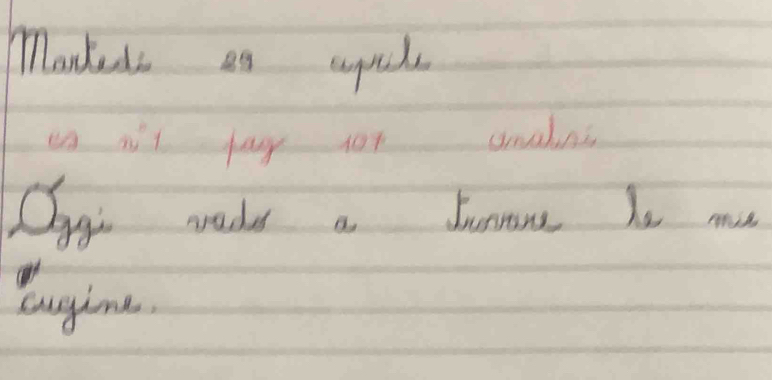 Martedì 29 aprile
es n°1 pag 107 analisi
Oggi vado a trovare le mie
cugine.